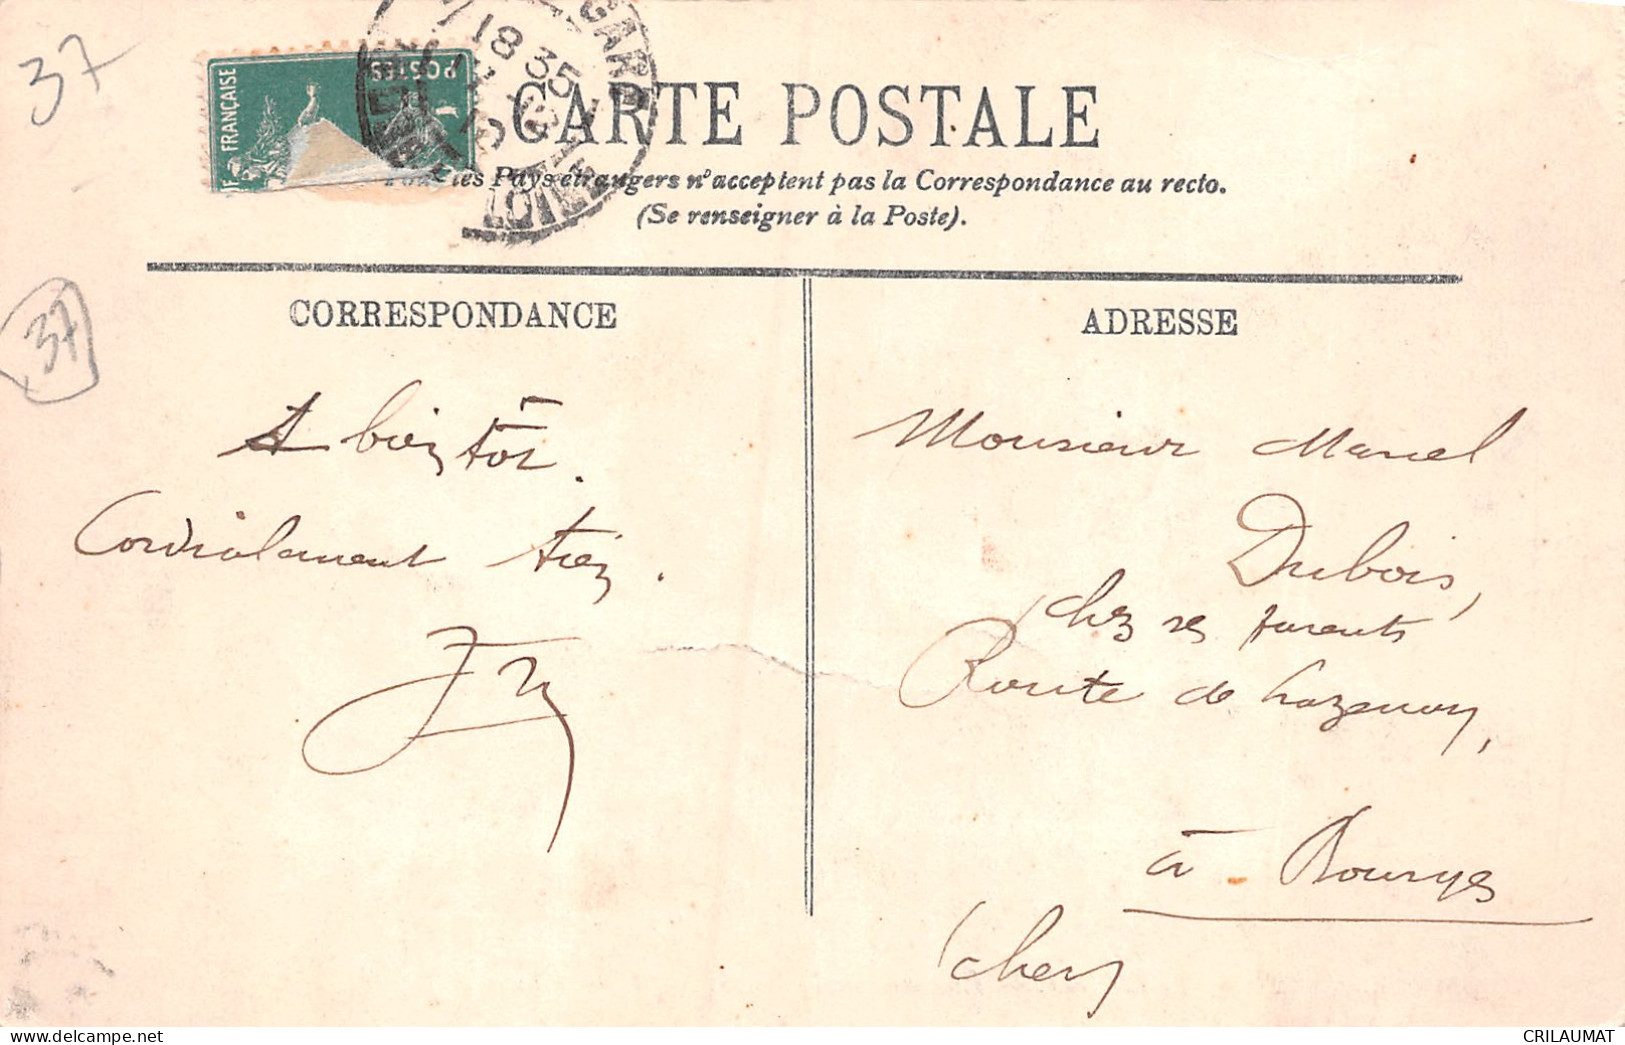 37
RF
FRANÇAISE
POSTES
GARE
18 35
CARTE POSTALE
Tous les Pays étrangers n'acceptent pas la Correspondance au recto.
(Se renseigner à la Poste).
37
CORRESPONDANCE
A bientôt.
Cordialement tien.
ADRESSE
Monsieur Marcel
Dubois,
chez ses parents
Route de Lazenay,
à Bourges
(Cher)
CRILAUMAT